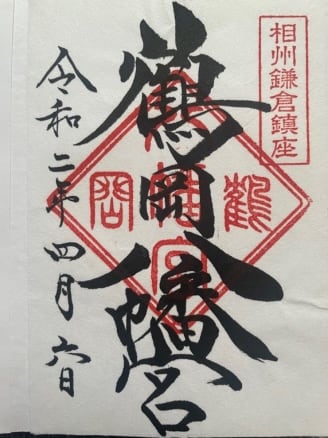 相州鎌倉鎮座
鶴岡八幡宮
鶴岡八幡宮
令和二年四月六日